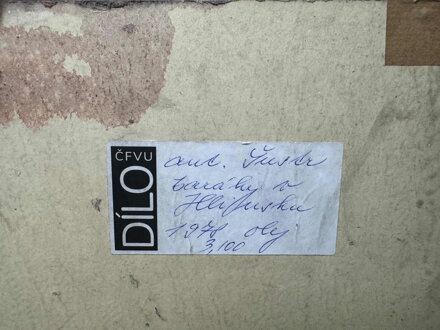 ČFVU
DÍLO
aut. Šustr
baráky v
Hlinsku
1978 olej
3,100